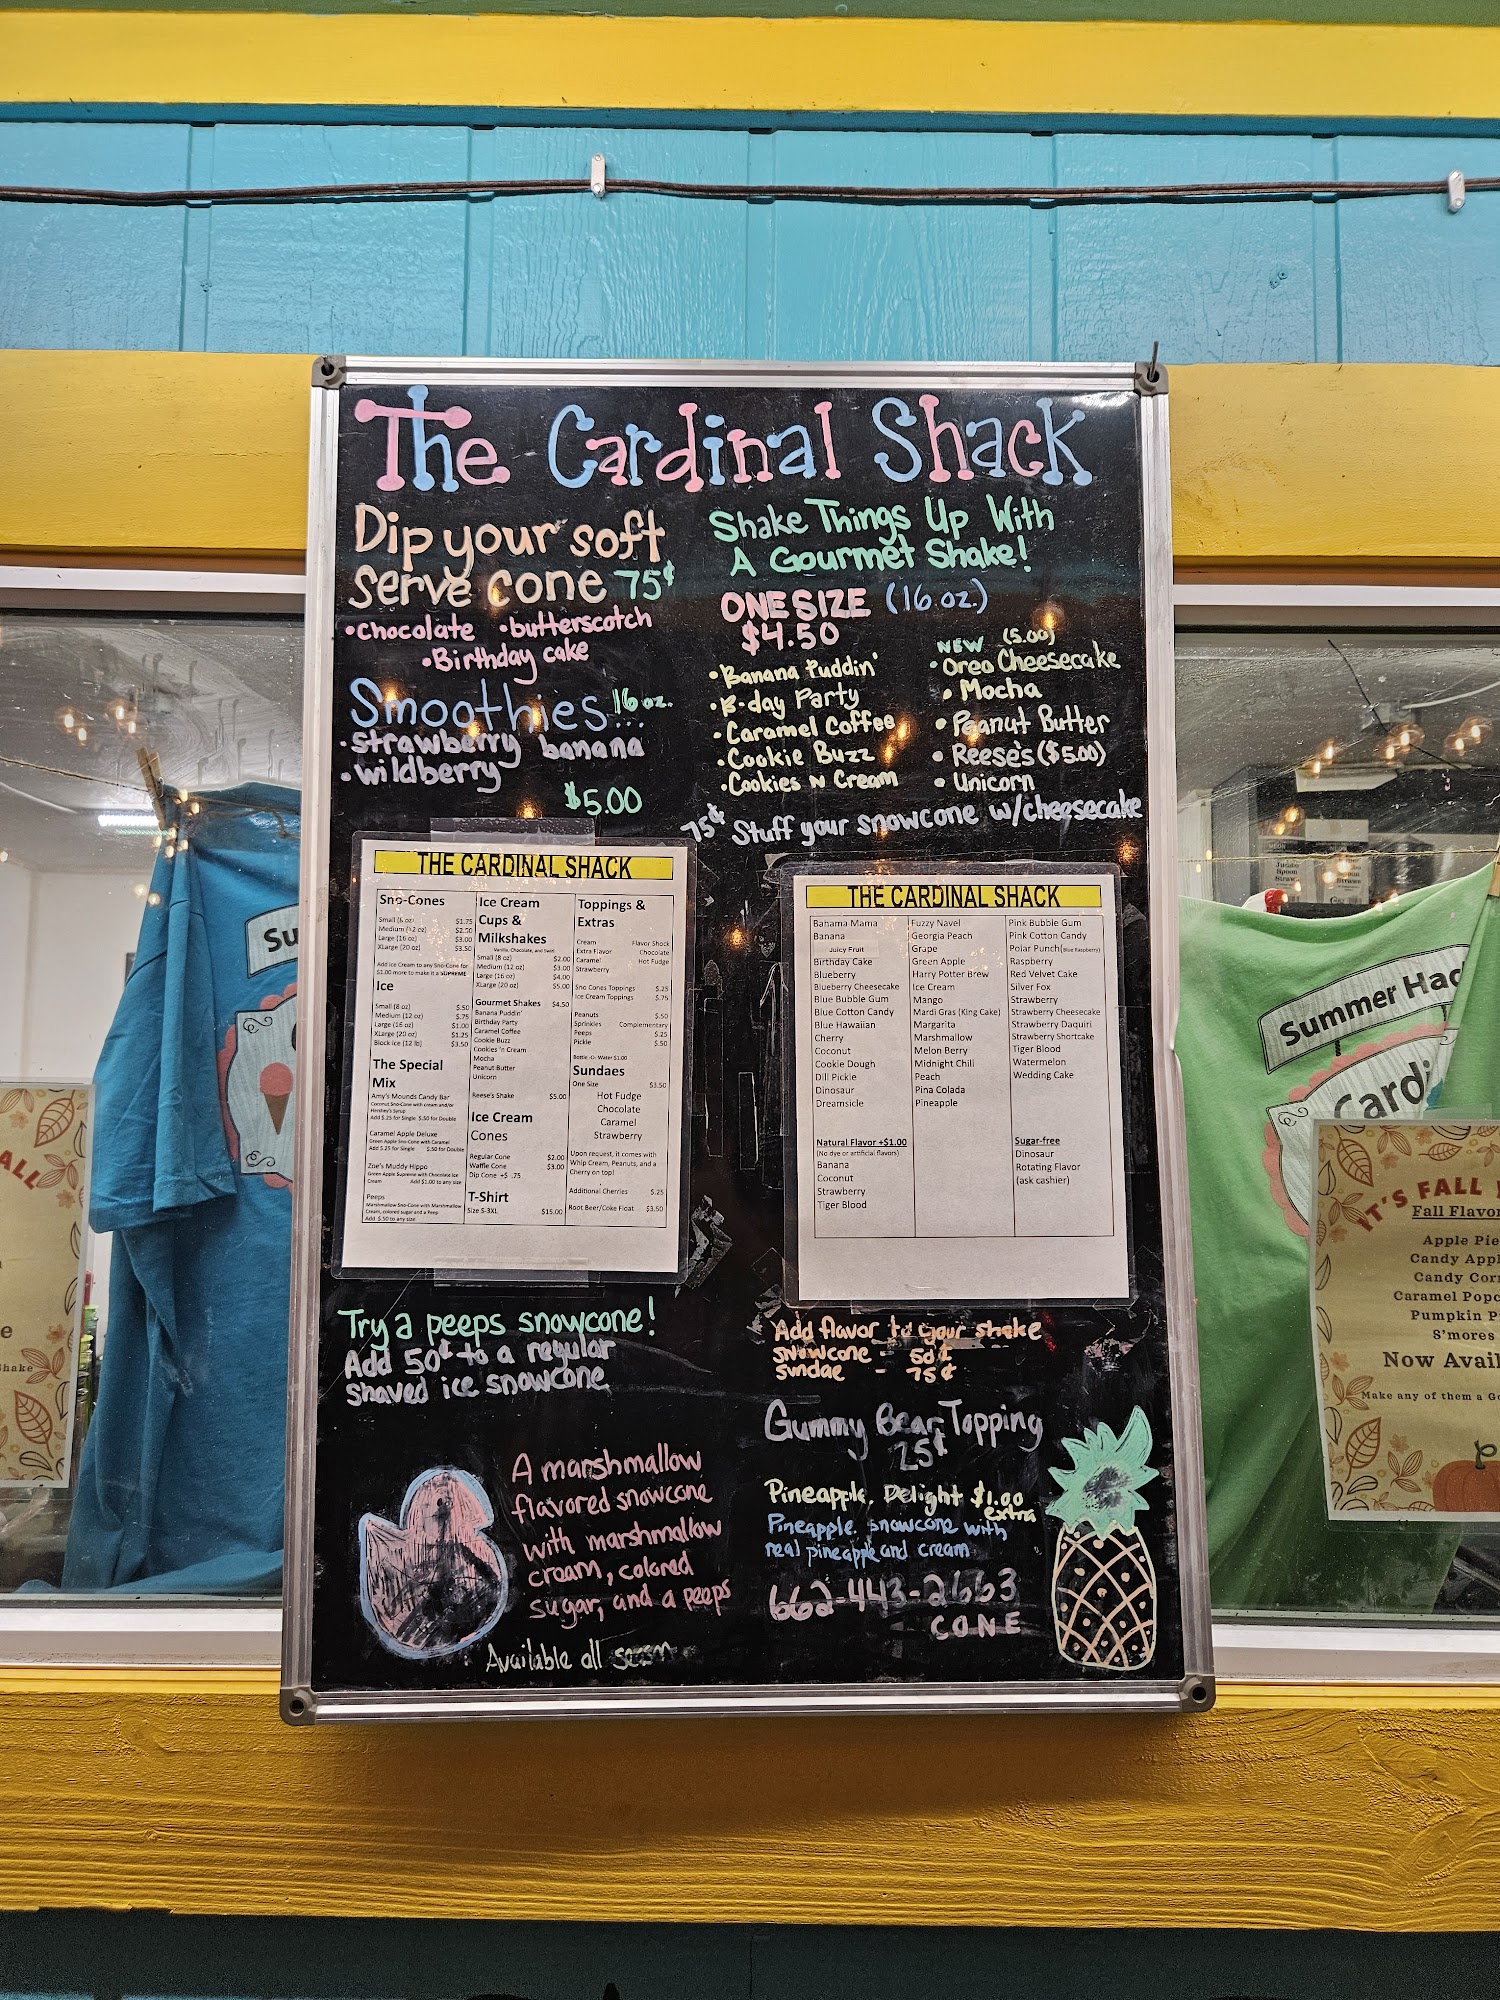 The Cardinal Shack
Dip your soft
serve cone 75¢
•Chocolate •butterscotch
•Birthday cake
Smoothies... 16 oz.
•strawberry banana
•wildberry
$5.00
Shake Things Up With
A Gourmet Shake!
ONE SIZE (16 oz.)
$4.50
•Banana Puddin'
•B-day Party
•Caramel Coffee
•Cookie Buzz
•Cookies N Cream
NEW (5.00)
•Oreo Cheesecake
•Mocha
•Peanut Butter
•Reese's ($5.00)
•Unicorn
75¢ Stuff your snowcone w/cheesecake
THE CARDINAL SHACK
Sno-Cones
Small (8 oz) $1.75
Medium (12 oz) $2.50
Large (16 oz) $3.00
XLarge (20 oz) $3.50
Add Ice Cream to any Sno-Cone for
$1.00 more to make it a SUPREME
Ice
Small (8 oz) $.50
Medium (12 oz) $.75
Large (16 oz) $1.00
XLarge (20 oz) $1.25
Block Ice (12 lb) $3.50
The Special
Mix
Amy's Mounds Candy Bar
Coconut Sno-Cone with cream and/or
Hershey's Syrup
Add $.25 for Single $.50 for Double
Caramel Apple Deluxe
Green Apple Sno-Cone with Caramel
Add $.25 for Single $.50 for Double
Zoe's Muddy Hippo
Green Apple Supreme with Chocolate Ice
Cream Add $1.00 to any size
Peeps
Marshmallow Sno-Cone with Marshmallow
Cream, colored sugar and a Peep
Add $.50 to any size
Ice Cream
Cups &
Milkshakes
Vanilla, Chocolate, and Swirl
Small (8 oz) $2.00
Medium (12 oz) $3.00
Large (16 oz) $4.00
XLarge (20 oz) $5.00
Gourmet Shakes $4.50
Banana Puddin'
Birthday Party
Caramel Coffee
Cookie Buzz
Cookies 'n Cream
Mocha
Peanut Butter
Unicorn
Reese's Shake $5.00
Ice Cream
Cones
Regular Cone $2.00
Waffle Cone $3.00
Dip Cone +$ .75
T-Shirt
Size S-3XL $15.00
Toppings &
Extras
Cream Flavor Shock
Extra Flavor Chocolate
Caramel Hot Fudge
Strawberry
Sno Cones Toppings $.25
Ice Cream Toppings $.75
Peanuts $.50
Sprinkles Complementary
Peeps $.25
Pickle $.50
Bottle -O- Water $1.00
Sundaes
One Size $3.50
Hot Fudge
Chocolate
Caramel
Strawberry
Upon request, it comes with
Whip Cream, Peanuts, and a
Cherry on top!
Additional Cherries $.25
Root Beer/Coke Float $3.50
THE CARDINAL SHACK
Bahama Mama
Banana
Juicy Fruit
Birthday Cake
Blueberry
Blueberry Cheesecake
Blue Bubble Gum
Blue Cotton Candy
Blue Hawaiian
Cherry
Coconut
Cookie Dough
Dill Pickle
Dinosaur
Dreamsicle
Natural Flavor +$1.00
(No dye or artificial flavors)
Banana
Coconut
Strawberry
Tiger Blood
Fuzzy Navel
Georgia Peach
Grape
Green Apple
Harry Potter Brew
Ice Cream
Mango
Mardi Gras (King Cake)
Margarita
Marshmallow
Melon Berry
Midnight Chill
Peach
Pina Colada
Pineapple
Pink Bubble Gum
Pink Cotton Candy
Polar Punch(Blue Raspberry)
Raspberry
Red Velvet Cake
Silver Fox
Strawberry
Strawberry Cheesecake
Strawberry Daquiri
Strawberry Shortcake
Tiger Blood
Watermelon
Wedding Cake
Sugar-free
Dinosaur
Rotating Flavor
(ask cashier)
Try a peeps snowcone!
Add 50¢ to a regular
shaved ice snowcone
A marshmallow
flavored snowcone
with marshmallow
cream, colored
sugar, and a peeps
Available all
Add flavor to your shake
snowcone - 50¢
sundae - 75¢
Gummy Bear Topping
25¢
Pineapple Delight $1.00
extra
Pineapple snowcone with
real pineapple and cream
662-443-2663
CONE
Su
ALL
Shake
Summer Had
Cardi
IT'S FALL
Fall Flavor
Apple Pie
Candy Appl
Candy Cor
Caramel Popc
Pumpkin P
S'mores
Now Avail
Make any of them a Go